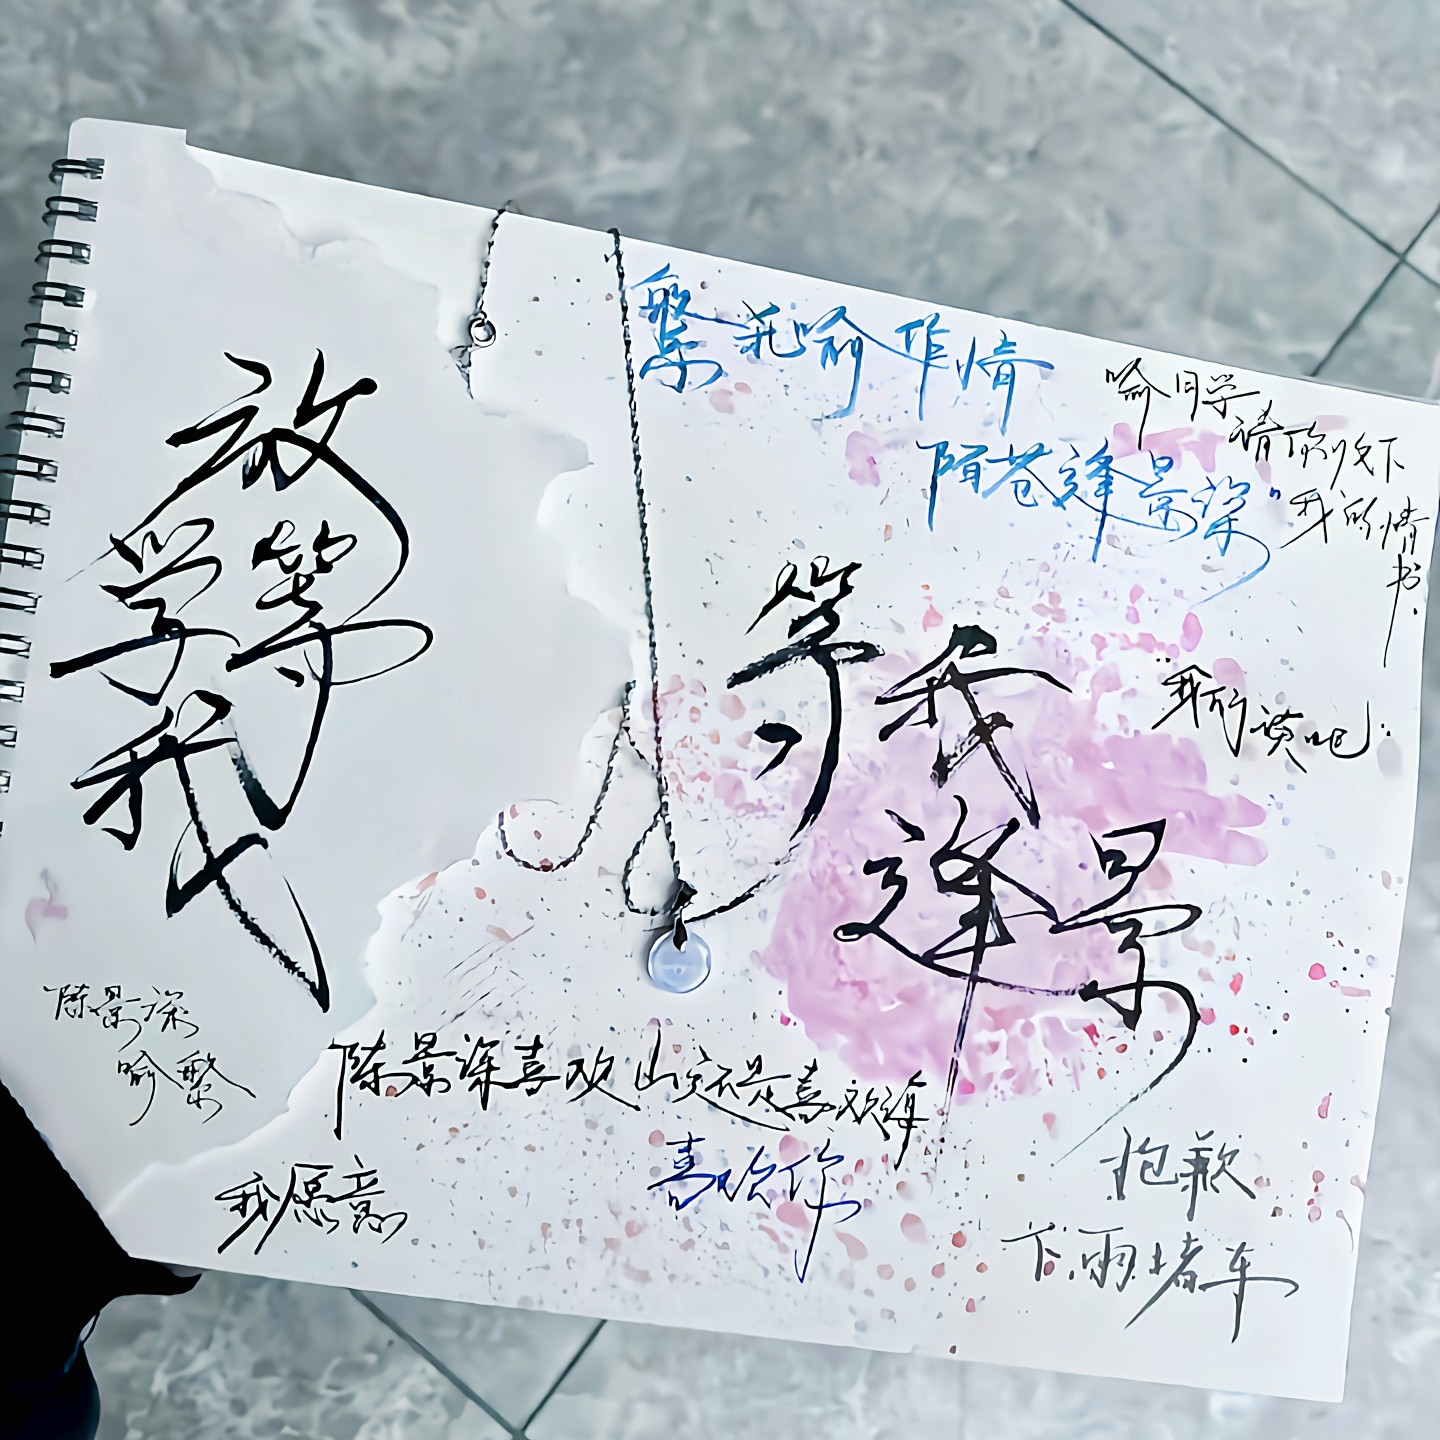 放
学等
我
陈景深
喻繁
繁花喻作情
陌苍逢景深"
喻同学
请你收下
我的情
书.
等我
逢景
"我们谈吧."
陈景深喜欢山就是喜欢海
喜欢你
我愿意
抱歉
下雨堵车